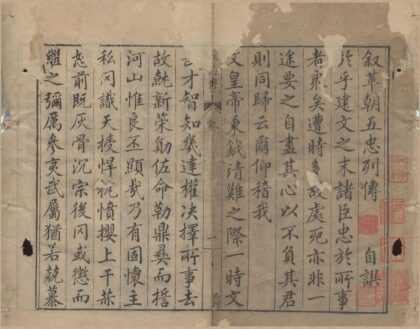 叙黃朝五忠列傳　自譔
於乎建文之末諸臣忠於所事
者衆矣遭時多故處死亦非一
途要之自盡其心以不負其君
則同歸云爾仰稽我
文皇帝東鉞靖難之際一時文
才智知幾達權决擇所事去
故就新策勛佐命勒鼎彝而誓
河山惟良丕顯哉乃有固懷主
私罔識天
老前既灰骨沉宗後罔或懲而
繼之彌厲參夷武屬猶若兢慕